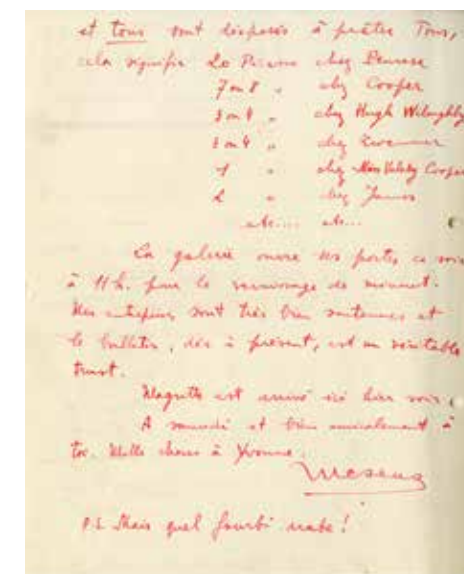 et tous sont disposés à prêter Tous,
cela signifie 20 Picasso chez Penrose
7 ou 8 " chez Cooper
3 ou 4 " chez Hugh Willoughby
3 ou 4 " chez
1 " chez Cooper
2 " chez James
etc.... etc...
La galerie ouvre ses portes ce soir
à 11 h. pour le vernissage de minuit.
Mes entreprises sont très bien soutenues et
le bulletin, dès à présent, est un véritable
trust.
Magritte est arrivé ici hier soir.
A samedi et bien amicalement à
toi. Mille choses à Yvonne.
Mesens
P.S. Mais quel fourbi!